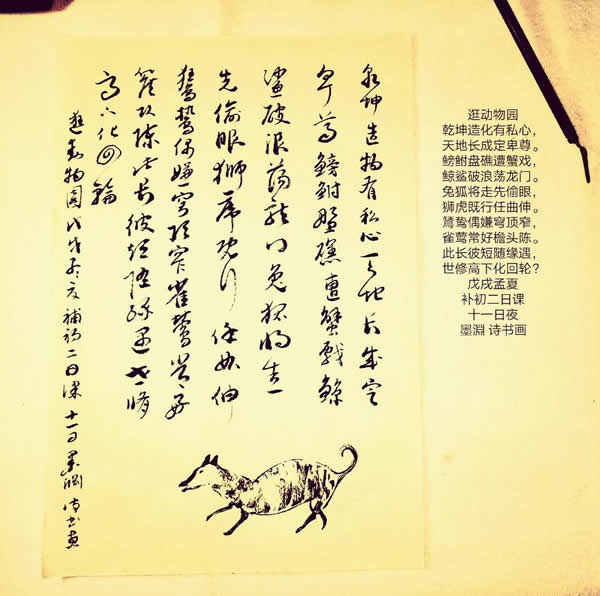 乾坤造物有私心天地长成定
卑尊鳑鲋盤礁遭蟹戲鲸
鲨破浪荡龙门兔狐将走
先偷眼狮虎既行任曲伸
鵟鸷偶嫌穹顶窄雀莺常好
簷头陈此长彼短随缘遇世修
高下化回轮
逛动物园戊戌孟夏補初二日课十一日墨渊诗书画
逛动物园
乾坤造化有私心，
天地长成定卑尊。
鳑鲋盘礁遭蟹戏，
鲸鲨破浪荡龙门。
兔狐将走先偷眼，
狮虎既行任曲伸。
鵟鸷偶嫌穹顶窄，
雀莺常好檐头陈。
此长彼短随缘遇，
世修高下化回轮？
戊戌孟夏
补初二日课
十一日夜
墨淵 诗书画